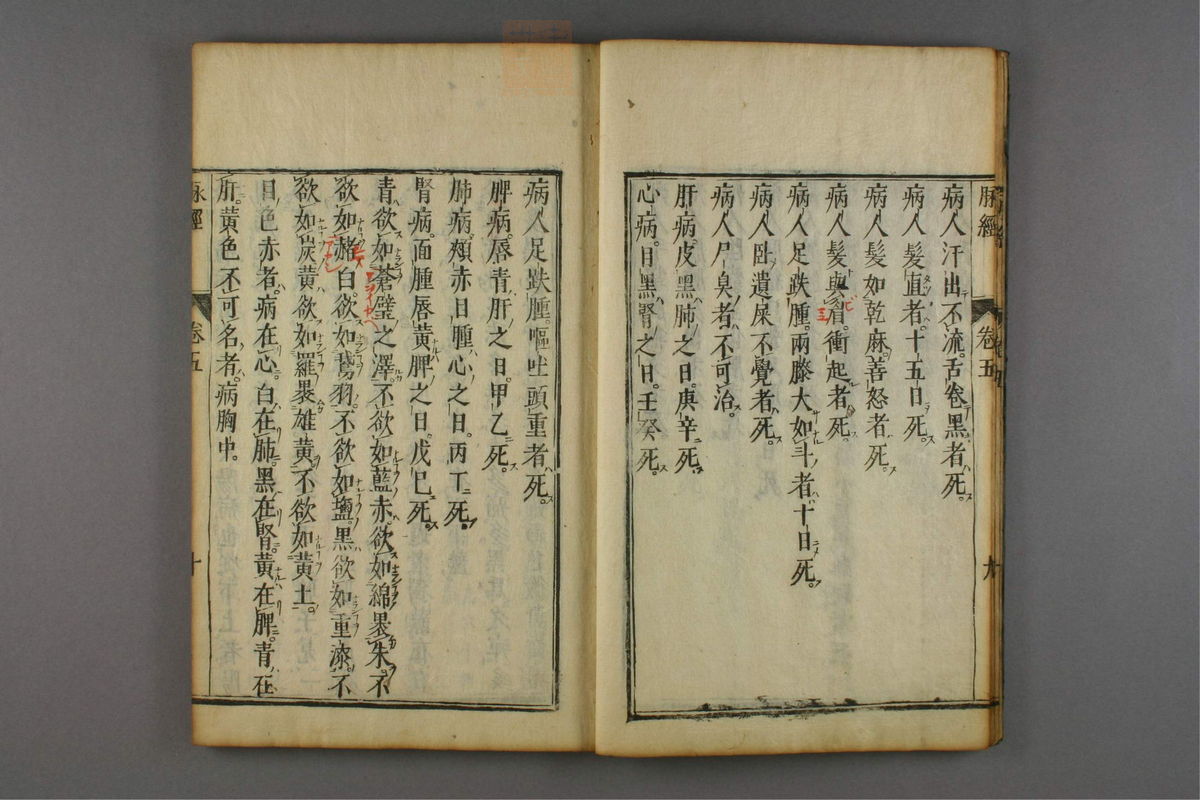 脉經 卷五 九
病人汗出不流。舌卷黑者死。
病人髮直者。十五日死。
病人髮如乾麻。善怒者死。
病人髮與眉衝起者死。
病人足趺腫。兩膝大如斗者。十日死。
病人臥遺屎不覺者死。
病人尸臭者不可治。
肝病。皮黑。肺之日。庚辛死。
心病。目黑。腎之日。壬癸死。
病人足趺腫。嘔吐頭重者死。
脾病。唇青。肝之日。甲乙死。
肺病。頰赤目腫。心之日。丙丁死。
腎病。面腫唇黃。脾之日。戊巳死。
青欲如蒼璧之澤。不欲如藍。赤欲如綿褁朱。不
欲如赭。白欲如鵞羽。不欲如鹽。黑欲如重漆。不
欲如炭。黃欲如羅褁雄黃。不欲如黃土。
目色赤者。病在心。白在肺。黑在腎。黃在脾。青在
肝。黃色不可名者。病胸中。
脉經 卷五 十